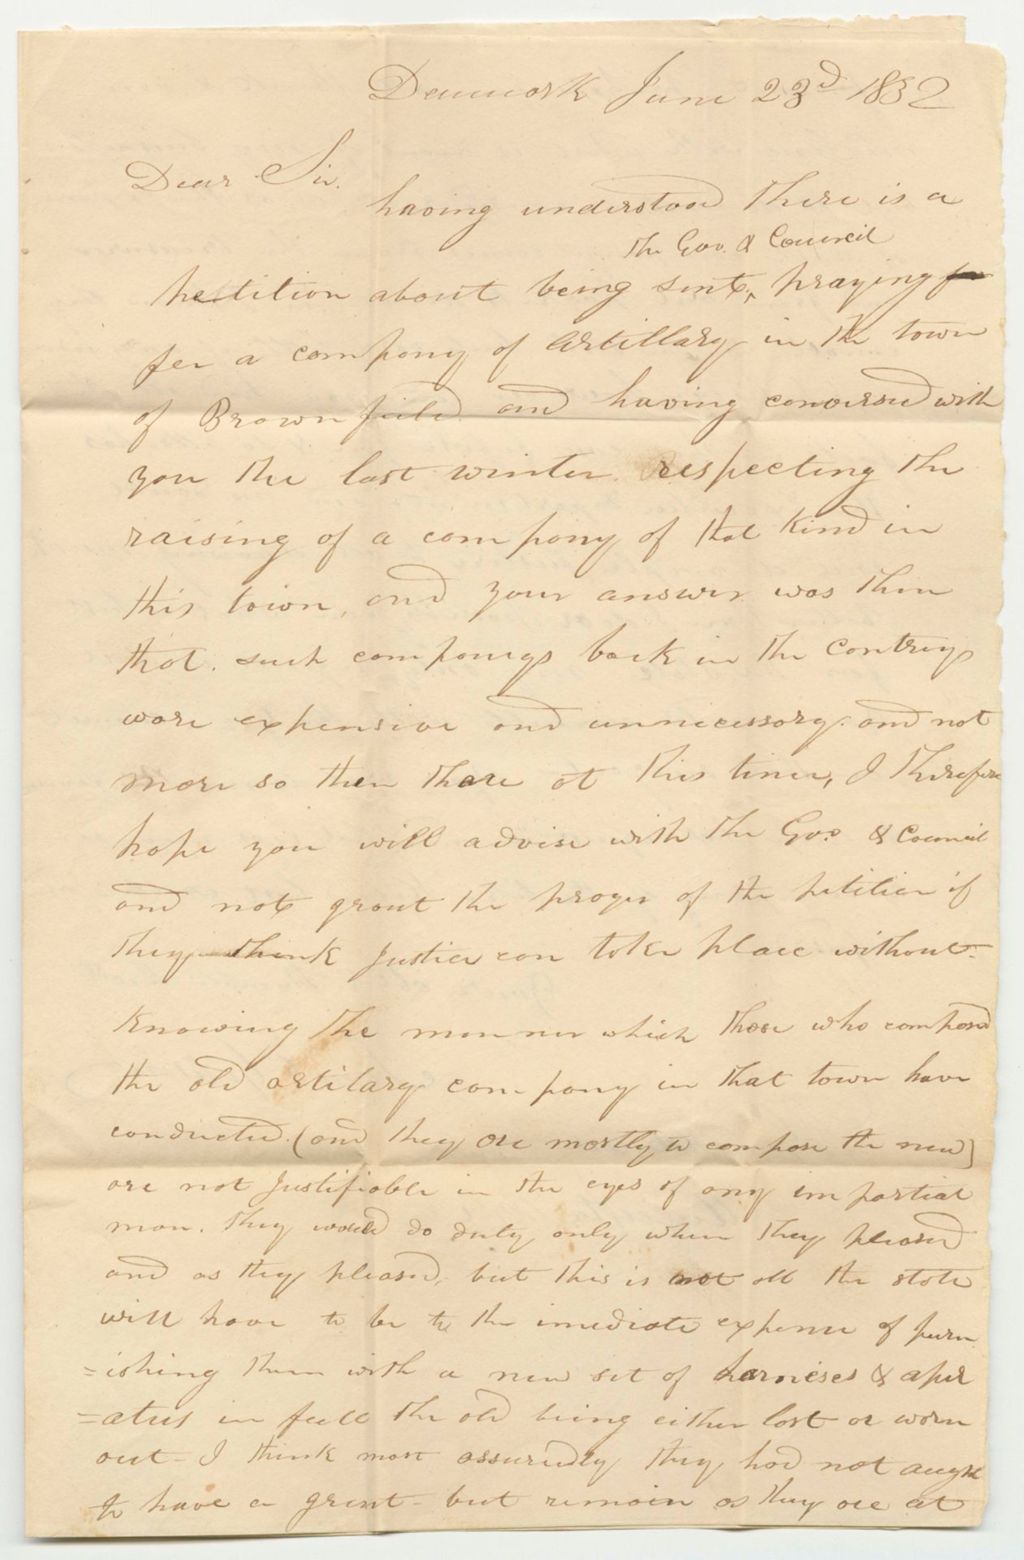 Denmark June 23d 1832
Dear Sir.
having understood there is a
the Gov. & Council
petition about being sent, praying
for a company of Artillary in the town
of Brownfield and having conversed with
you the last winter respecting the
raising of a company of that kind in
this town, and your answer was then
that. such companys back in the contrey
ware expensive and unnecessary. and not
more so then thare at this time, I therefore
hope you will advise with the Gov. & Council
and not grant the prayer of the petition if
they think Justice can take place without-
Knowing the manner which those who composed
the old artilary company in that town have
conducted. (and they are mostly to compose the new)
are not Justifiable in the eyes of any impartial
man. they would do duty only when they pleased
and as they pleased, but this is not all the state
will have to be to the imediate expense of furn
=ishing them with a new set of harnises & apir
=atus in full the old being either lost or worn
out- I think most assuredly they had not aught
to have a grant- but remain as they are at